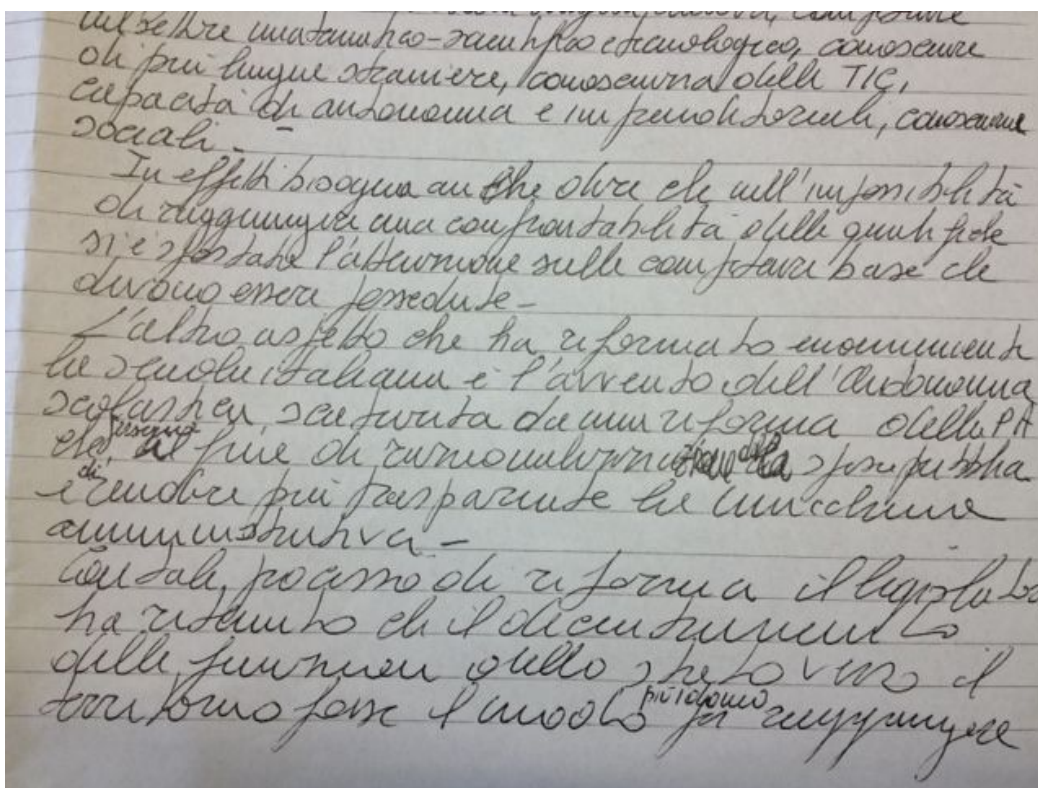 nel settore matematico-scientifico e tecnologico, conoscenze
di più lingue straniere, conoscenza delle TIC,
capacità di autonomia e imprenditoriali, conoscenze
sociali -
In effetti bisogna anche dire che nell'impossibilità
di raggiungere una confrontabilità delle qualifiche
si è spostata l'attenzione sulle competenze base che
devono essere possedute -
L'altro aspetto che ha riformato enormemente
la scuola italiana è l'avvento dell'Autonomia
scolastica, scaturita da una riforma della PA
al fine di razionalizzare la spesa pubblica
e di rendere più trasparente la macchina
amministrativa -
Con tale processo di riforma il legislatore
ha ritenuto che il decentramento
delle funzioni dello stato verso il
territorio fosse il modo più idoneo per raggiungere